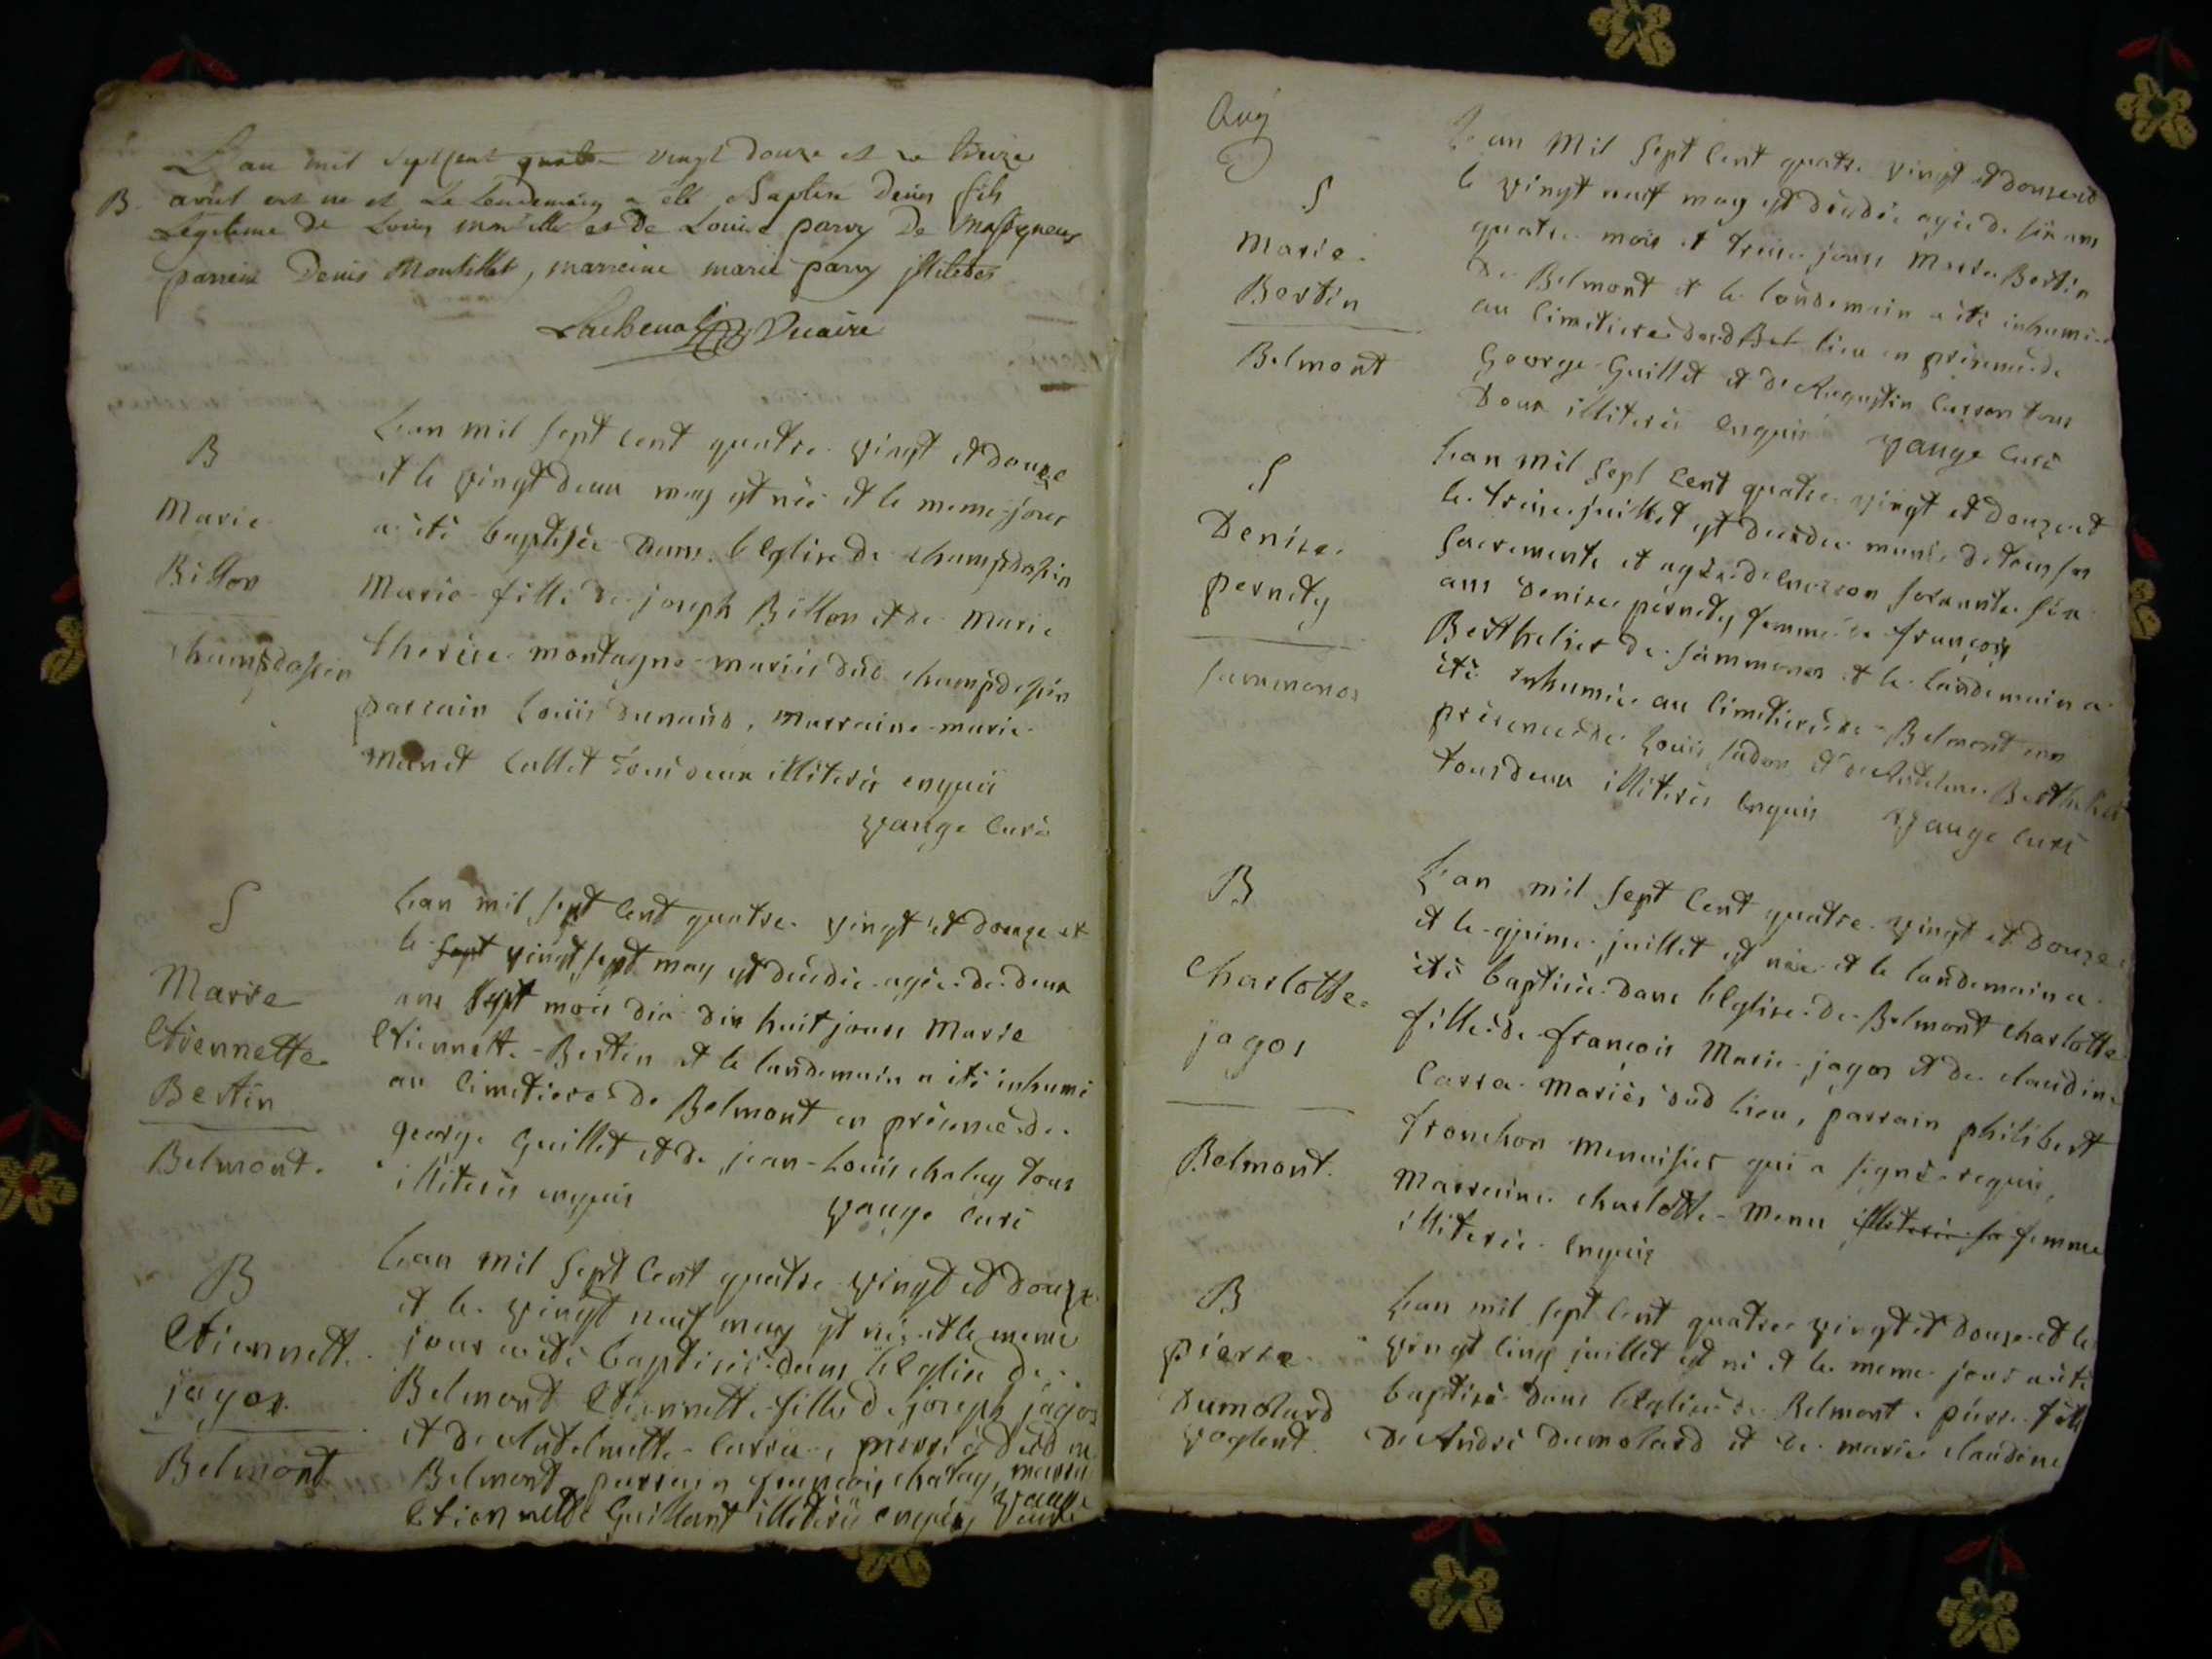 L'an mil sept cent quatre vingt douze et le treize
B. avril est ne et Le Lendemain a été Baptisé Denis fils
Legitime de Louis et de Louise parvy De Massigneux
parrein Denis Montillet, marreine marie parvy illiteres
Lachenal Vicaire
B
Marie
Billon
champdossin
Lan mil sept cent quatre vingt et douze
et le vingt deux may est née et le meme jour
a été baptisée dans l'Eglise de champdossin
Marie fille de joseph Billon et de Marie
therese montagne mariés dud champdossin
parrain Louis dunand, marraine marie
manet Callet tous deux illiterés enquis
yange Curé
S
Marie
Etiennette
Bertin
Belmont.
Lan mil sept Cent quatre vingt et douze et
le sept vingt sept may est decedée agée de deux
ans sept mois dix huit jours Marie
Etiennette Bertin et le landemain a été inhumé
au Cimetiere de Belmont en présence de
george Guillet et de jean-Louis chalay tous
illiterés enquis
yange Curé
B
Etiennette
jagos
Belmont
Lan mil sept Cent quatre vingt et douze
et le vingt neuf may est née et le meme
jour a été baptisée dans l'Eglise de
Belmont Etiennette fille de joseph jagos
et de Antelmette Carra,
Belmont parrain francois chalay, marra
Etiennette Guillant illiterés enquis yange Curé
Aug
S
Marie
Bertin
Belmont
L'an Mil sept Cent quatre vingt et douze et
le vingt neuf may est décedée agée de six ans
quatre mois et treize jours Marie Bertin
de Belmont et le landemain a été inhumée
au Cimetiere dud Bel lieu en présence de
George Guillet et de Augustin Curron tous
deux illiterés enquis yange Curé
S
Denise
pernety
sammonos
Lan mil sept Cent quatre vingt et douze et
le treize juillet est decedée munie de tous ses
sacrements et agée d'environ soixante six
ans Denise pernety femme de françois
Berthelier de sammonos et le landemain a
été inhumée au Cimetiere de Belmont en
présence de Louis et de Antelme Berthelier
tous deux illiterés enquis yange Curé
B
Charlotte
jagos
Belmont.
L'an mil sept Cent quatre vingt et douze
et le quinze juillet est née et le landemain a
été baptisée dans l'Eglise de Belmont Charlotte
fille de françois Marie jagos et de claudine
Carra Mariés dud lieu, parrain philibert
fronchon Menuisier qui a signé requis,
Marraine charlotte Menu illiterée sa femme
illiterée enquis
B
pierre
Dumolard
voglent
Lan mil sept Cent quatre vingt et douze et le
vingt cinq juillet est né et le meme jour a été
baptisé dans l'Eglise de Belmont pierre fils
de André Dumolard et de marie claudine